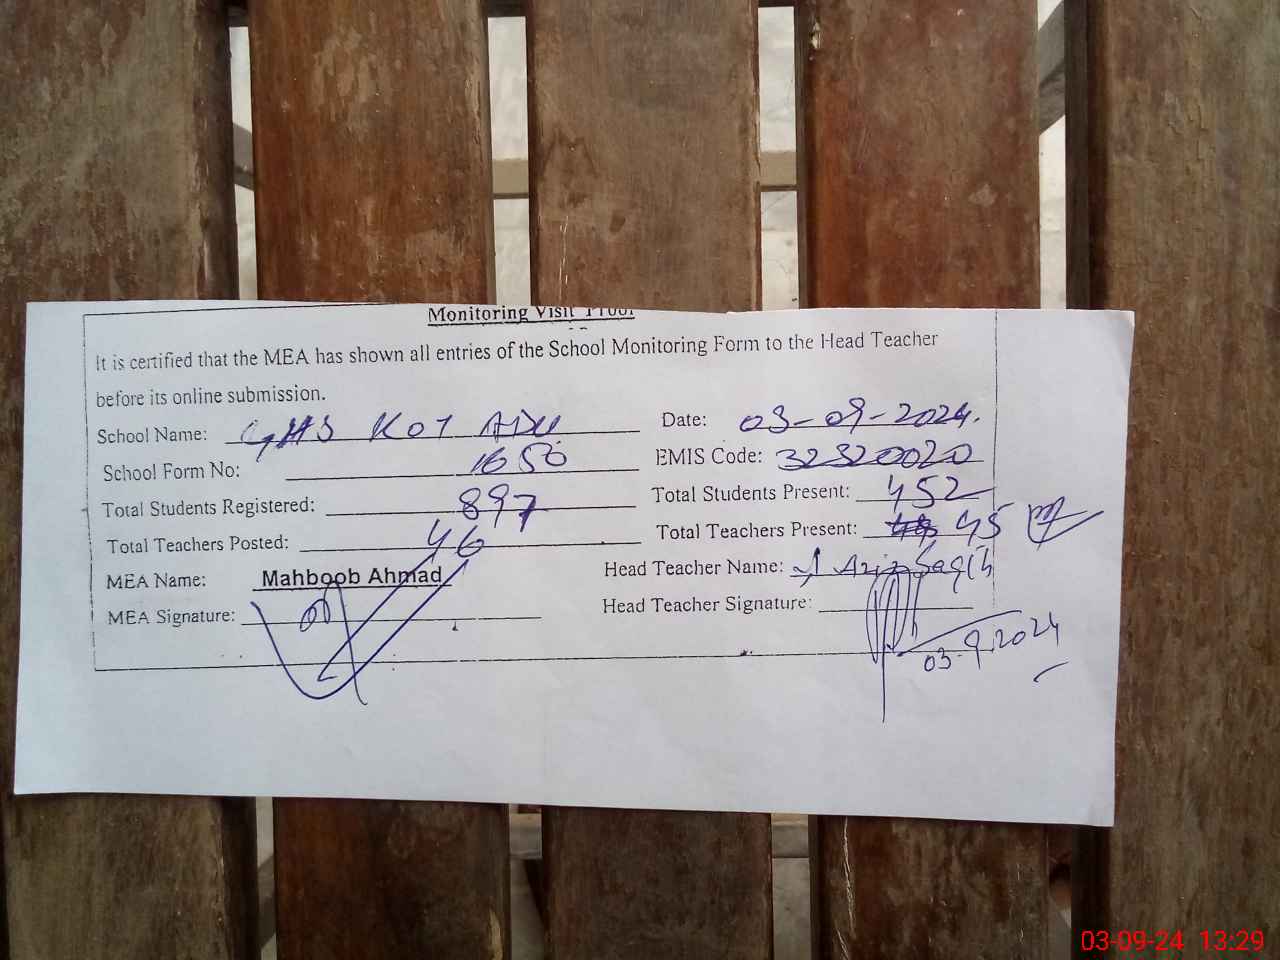 Monitoring Visit Proof
It is certified that the MEA has shown all entries of the School Monitoring Form to the Head Teacher
before its online submission.
School Name: GHS KOT ADU Date: 03-09-2024.
School Form No: 1656 EMIS Code: 32320020
Total Students Registered: 897 Total Students Present: 452
Total Teachers Posted: 46 Total Teachers Present: 45
MEA Name: Mahboob Ahmad Head Teacher Name: Aziz
MEA Signature: Head Teacher Signature:
03-9.2024
03-09-24 13:29